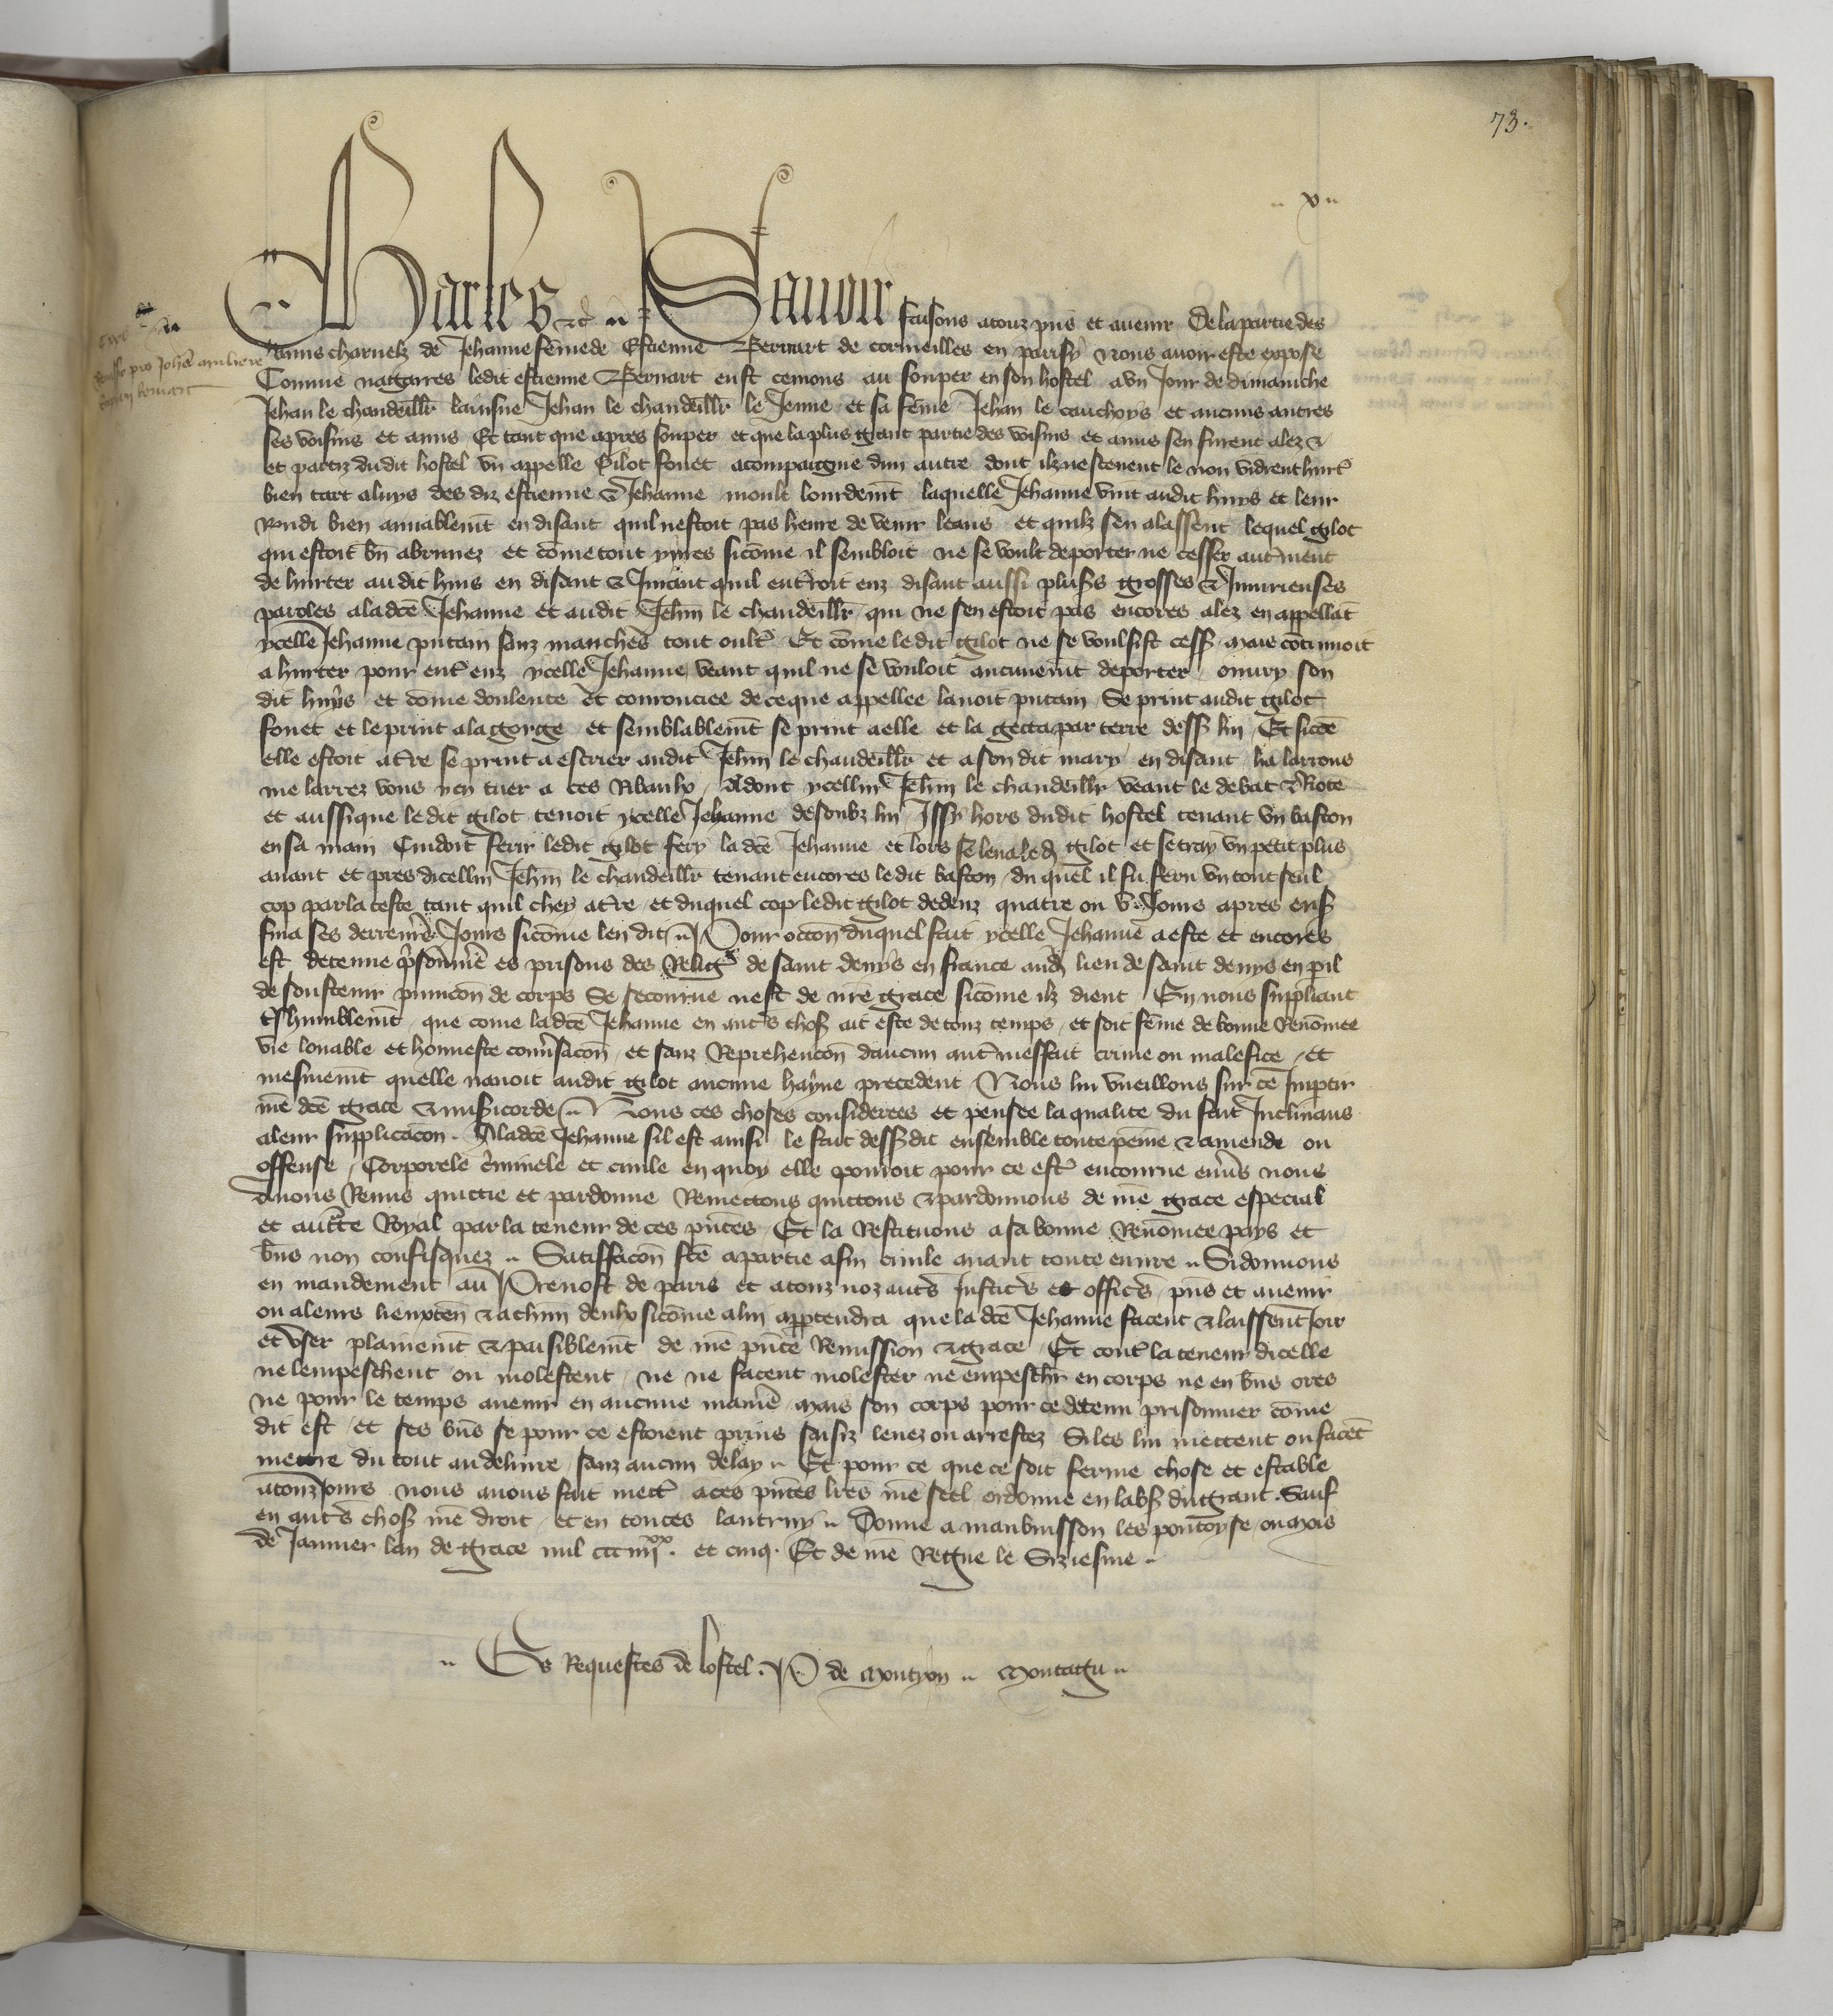 73.
.. x ..
Charles etc .. Savoir faisons a touz p̃ns et avenir De la partie des
amis charnelz de Jehanne fẽme de Estienne Bernart de cormeilles en parisy Nous avoir este expose
Comme nagaires ledit estienne Bernart eust cemons au souper en son hostel a un Jour de dimanche
Jehan le chandeill̃r lainsne Jehan le chandeill̃r le Jeune et sa fẽme Jehan le cauchoys et aucuns autres
ses voisins et amis Et tant que apres souper et que la plus grant partie des voisins et amis sen furent alez &
et partiz dudit hostel un appelle Gilot fouet acompaignie dun autre dont ilz ne scevent le non vidrent hurt̃
bien tart a luys des diz estienne & Jehanne moult lourdem̃t laquelle Jehanne vint audit huys et leur
rõndi bien amiablem̃t en disant quil nestoit pas heure de venir leans et quilz sen alassent lequel gilot
qui estoit bñ abruvez et cõme tout yvres sicõme il sembloit ne se voult deporter ne cesser aut̃ment
de hurter au dit huis en disant & Jurant quil entroit enz disant aussi plus̃s grosses & Jniurieuses
paroles a lad̃ce Jehanne et audit Jeh̃n le chandeill̃r qui ne sen estoit pas encores alez en appellãt
ycelle Jehanne putain sanz manches tout oult̃ Et cõme ledit gilot ne se voulsist cess̃ mais cõtinuoit
a hurter pour ent̃ enz ycelle Jehanne veant quil ne se vouloit aucunem̃t deporter ouvry son
dit huys et cõme doulente et courouciee de ce que appellee lavoit putain Se print audit gilot
fouet et le print a la gorge et semblablem̃t se print a elle et la getta par terre dess̃ lui Et sicõe
elle estoit at̃re se print a escrier audit Jeh̃n le chandeill̃r et a son dit mary en disant ha larrons
me larrez vous ycy tuer a ces Ribaulx Adont ycellui Jeh̃n le chandeill̃r veant le debat & Rote
et aussi que le dit gilot tenoit ycelle Jehanne desoubz lui Issy hors dudit hostel tenant un baston
en sa main Cuidoit ferir ledit gilot fery la dc̃e Jehanne et lors se leva led̃ gilot et se tray un petit plus
avant et pres dicellui Jeh̃n le chandeill̃r tenant encores ledit baston du quel il fu feru un tout seul
cop par la teste tant quil chey at̃re et duquel cop ledit gilot dedenz quatre ou v. Jours apres ens̃
fina ses derreniers Jours sicõme len dit .. Pour occoñ duquel fait ycelle Jehanne a este et encores
est detenue p̃sonñiẽ es prisons des Relig̃x de saint denys en france aud̃ lieu de saint denys en p̃il
de soustenir pumcoñ de corps Se secourue nest de ñre grace sicõme ilz dient En nous suppliant
t̃s humblem̃t que come lad̃ce Jehanne en aut̃s chos̃ ait este de touz temps et soit fẽme de bonne Renõmee
vie louable et honneste conṽsacoñ et sanz Reprehencoñ daucun aut̃ meffait crime ou malefice et
mesmem̃t quelle navoit audit gilot aucune hayne precedent Nous lui vueillons sur ce Imp̃tir
ñre dc̃e grace & mis̃icorde .. Nous ces choses considerees et pensee la qualite du fait Inclinans
a leur supplicacoñ A lad̃ce Jehanne sil est ainsi le fait dess̃dit ensemble toute peine & amende ou
offense Corporele c̃minele et civile en quoy elle pouroit pour ce est̃ encourue env̂s nous
Avons Remis quictie et pardonne Remettons quittons & pardonnons de ñre grace especial
et auct̃te Royal par la teneur de ces p̃ntes Et la Restituons a sa bonne Renõmee pays et
bñs non confisquez .. Satisfacoñ fc̃e a partie a fin civile avant toute euvre .. Si donnons
en mandement au Prevost de paris et a touz noz aut̃s Justic̃s et offic̃s p̃ns et avenir
ou a leurs lieuxteñ & a chũn deulx sicõme a lui app̃tendra que la dc̃e Jehanne facent & laissent Joir
et user plainem̃t & paisiblem̃t de ñre p̃nte Remission & grace Et cont̃ la teneur dicelle
ne lempeschent ou molestent ne ne facent molester ne empesch̃r en corps ne en bñs ores
ne pour le temps avenir en aucune manie᷑ mais son corps pour ce detenu prisonnier cõme
dit est et ses bñs se pour ce estoient prins saisiz levez ou arrestez Si les lui mettent ou facẽt
mettre du tout au delivre sanz aucun delay .. Et pour ce que ce soit ferme chose et estable
a touz Jours nous avons fait mett̃ a ces p̃ntes lr̃es ñre seel ordonne en labs̃ du grant . Sauf
en aut̃s chos̃ ñre droit et en toutes lautruy .. Donne a maubuisson les pontoyse ou mois
de Janvier lan de grace mil ccc iiijxx. et cinq. Et de ñre Regne le Siziesme ..
.. Es Requestes de lostel . P de montyon .. Montagu ..